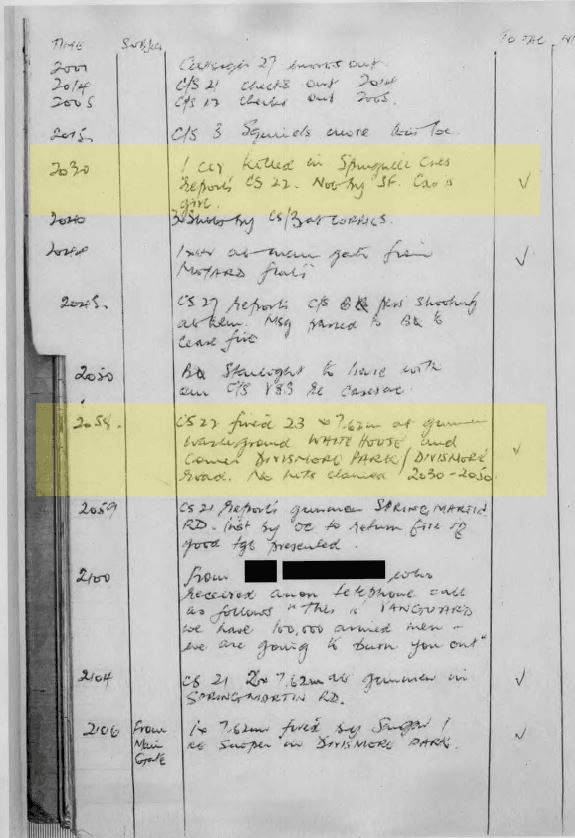 TIME Subject TO TAC
2000 Callsign 27 moves out.
2014 C/S 21 checks out 2014
2005 C/S 12 checks out 2005.
2015. C/S 3 Squirids more
2030 1 civ killed in Springhill
Reports CS 22. Not by SF. Cas is
girl.
2040 3 Shots by CS/3 at CORRIES.
at main gate from
MOYARD flats
2045. CS 27 Reports C/S pers shooting
at them. Msg passed to to
cease fire
2050 to have with
our C/S re casevac.
2055. CS 22 fired 23 x 7.62mm at gunmen
Wasteground WHITE HOUSE and
Corner DIVISMORE PARK / DIVISMORE
Road. No hits claimed 2030-2050.
2059 CS 21 Reports gunmen SPRINGMARTIN
RD. inst by OC to return fire if
good tgt presented.
2100 From who
received anon telephone call
as follows "This is VANGUARD
we have 100,000 armed men -
we are going to burn you out"
2104 CS 21 2 x 7.62mm at gunmen in
SPRINGMARTIN RD.
2106 From 1 x 7.62mm fired by
Main at sniper in DIVISMORE PARK.
Gate